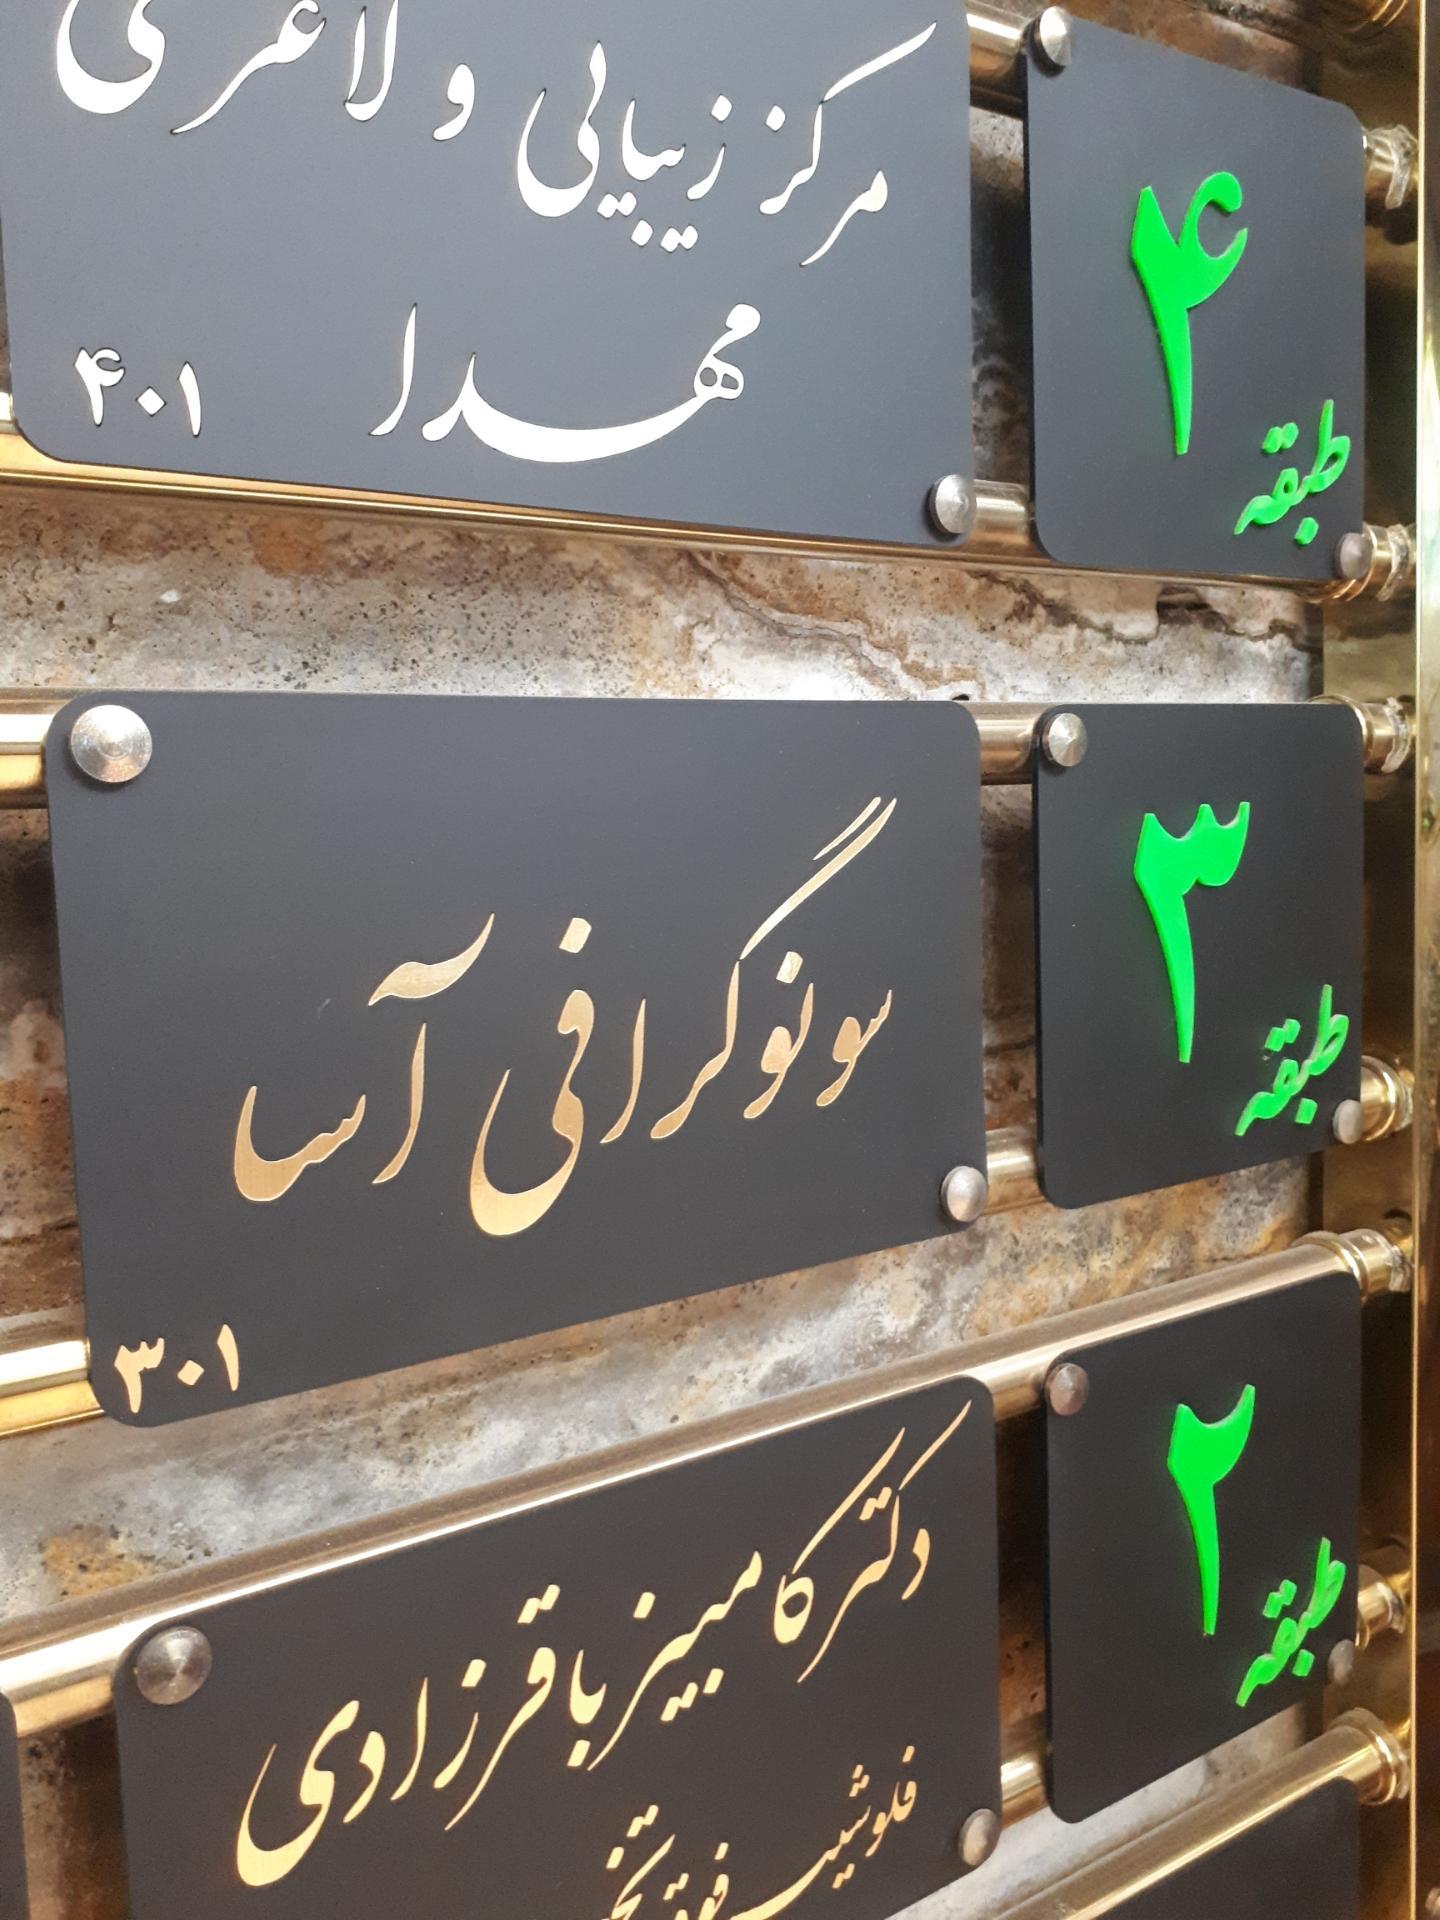 مرکز زیبایی و لاغری
مهدا
۴۰۱
۴
طبقه
سونوگرافی آسا
۳۰۱
۳
طبقه
دکتر کامبیز باقرزادی
فلوشیپ فوق تخصصی
۲
طبقه